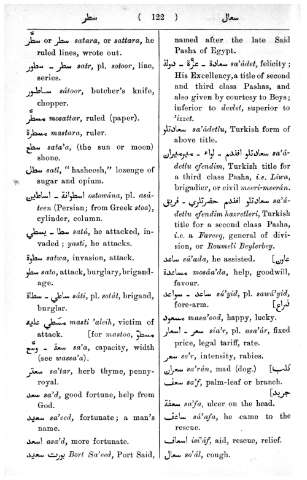 سطر ( 122 ) سعال
سطر or سطّر satara, or sattara, he
ruled lines, wrote out.
سطر - سطور satr, pl. sotoor, line,
series.
ساطور sátoor, butcher's knife,
chopper.
مسطّر mosattar, ruled (paper).
مسطرة mastara, ruler.
سطع sata'a, (the sun or moon)
shone.
سطل satl, "hasheesh," lounge of
sugar and opium.
اسطوانة - اساطين ostowána, pl. asá-
teen (Persian; from Greek stoa),
cylinder, column.
سطا - يسطي satá, he attacked, in-
vaded; yasti, he attacks.
سطوة satwa, invasion, attack.
سطو sato, attack, burglary, brigand-
age.
ساطي - سطاة sáti, pl. sotát, brigand,
burglar.
مسطي عليه masti 'aleih, victim of
attack. [for mastoo, مسطو
سعة - وسع sa'a, capacity, width
(see wassa'a).
سعتر sa'tar, herb thyme, penny-
royal.
سعد sa'd, good fortune, help from
God.
سعيد sa'eed, fortunate; a man's
name.
اسعد asa'd, more fortunate.
بورت سعيد Bort Sa'eed, Port Said,
named after the late Said
Pasha of Egypt.
سعادة - عزة - دولة sa'ádet, felicity;
His Excellency, a title of second
and third class Pashas, and
also given by courtesy to Beys;
inferior to dowlet, superior to
'izzet.
سعادتلو sa'ádetlu, Turkish form of
above title.
سعادتلو افندم - لواء - ميرميران sa'á-
detlu efendim, Turkish title for
a third class Pasha, i.e. Liwa,
brigadier, or civil meeri-meerán.
سعادتلو افندم حضرتلري - فريق sa'á-
detlu efendim hazretleri, Turkish
title for a second class Pasha,
i.e. a Fareeq, general of divi-
sion, or Roumeli Beylerbey.
ساعد sá'ada, he assisted. [عاون
مساعدة mosáa'da, help, goodwill,
favour.
ساعد - سواعد sá'yid, pl. sawá'yid,
fore-arm. [ذراع
مسعود masa'ood, happy, lucky.
سعر - اسعار sia'r, pl. asa'ár, fixed
price, legal tariff, rate.
سعر sa'r, intensity, rabies.
سعران sa'rán, mad (dog.) [كلب
سعف sa'f, palm-leaf or branch.
[جريد
سعفة sa'fa, ulcer on the head.
ساعف sá'afa, he came to the
rescue.
اسعاف isa'áf, aid, rescue, relief.
سعال so'ál, cough.